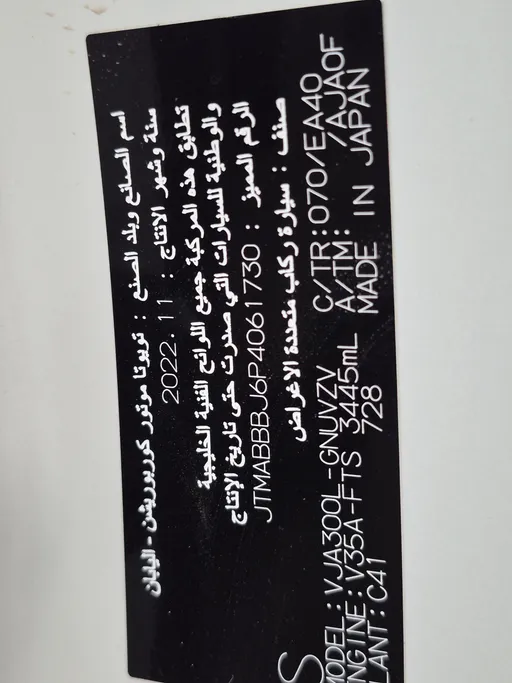 اسم الصانع وبلد الصنع : تويوتا موتور كوربوريشن - اليابان
سنة وشهر الانتاج : 2022.11
تطابق هذه المركبة جميع اللوائح الفنية الخليجية
والوطنية للسيارات التي صدرت حتى تاريخ الإنتاج
الرقم المميز : JTMABBBJ6P4061730
صنف : سيارة ركاب متعددة الاغراض
S
MODEL : VJA300L-GNUVZV C/TR : 070/EA40
NGINE : V35A-FTS 3445mL A/TM : /AJA0F
LANT : C41 728 MADE IN JAPAN